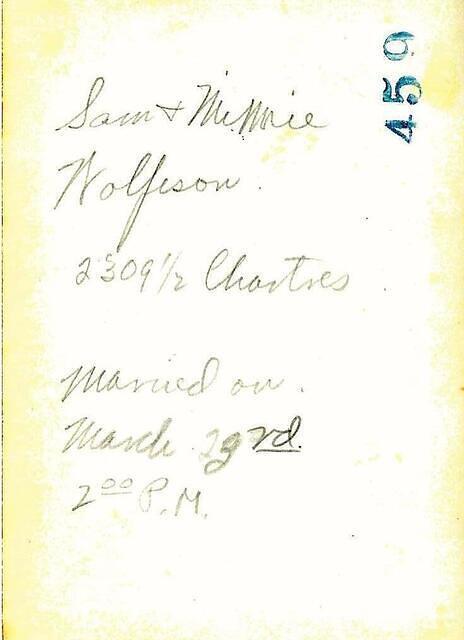 459
Sam + Minnie
Wolfeson.
2309 1/2 Chartres.
Married on.
March 23rd.
2 00 P.M.